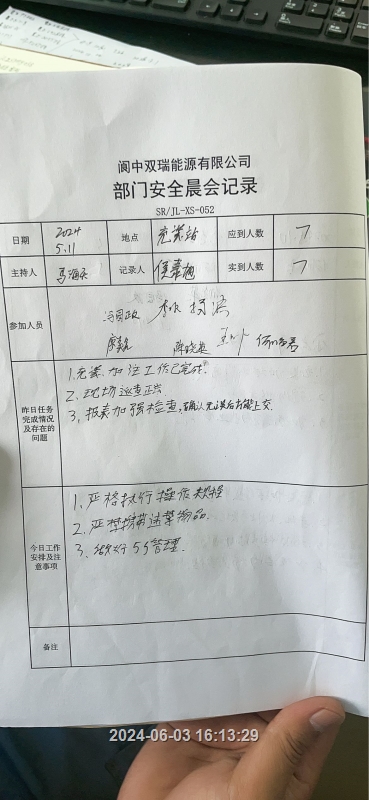 阆中双瑞能源有限公司
部门安全晨会记录
SR/JL-XS-052
日期 2024 5.11 地点 充装站 应到人数 7
主持人 记录人 实到人数 7
参加人员
昨日任务完成情况及存在的问题
1.充装.加注工作已完成.
2.现场巡查正常
3,报表加强检查,确认无误后才能上交.
今日工作安排及注意事项
1、严格执行操作规程
2.严禁携带违禁物品.
3、做好5S管理.
备注
2024-06-03 16:13:29